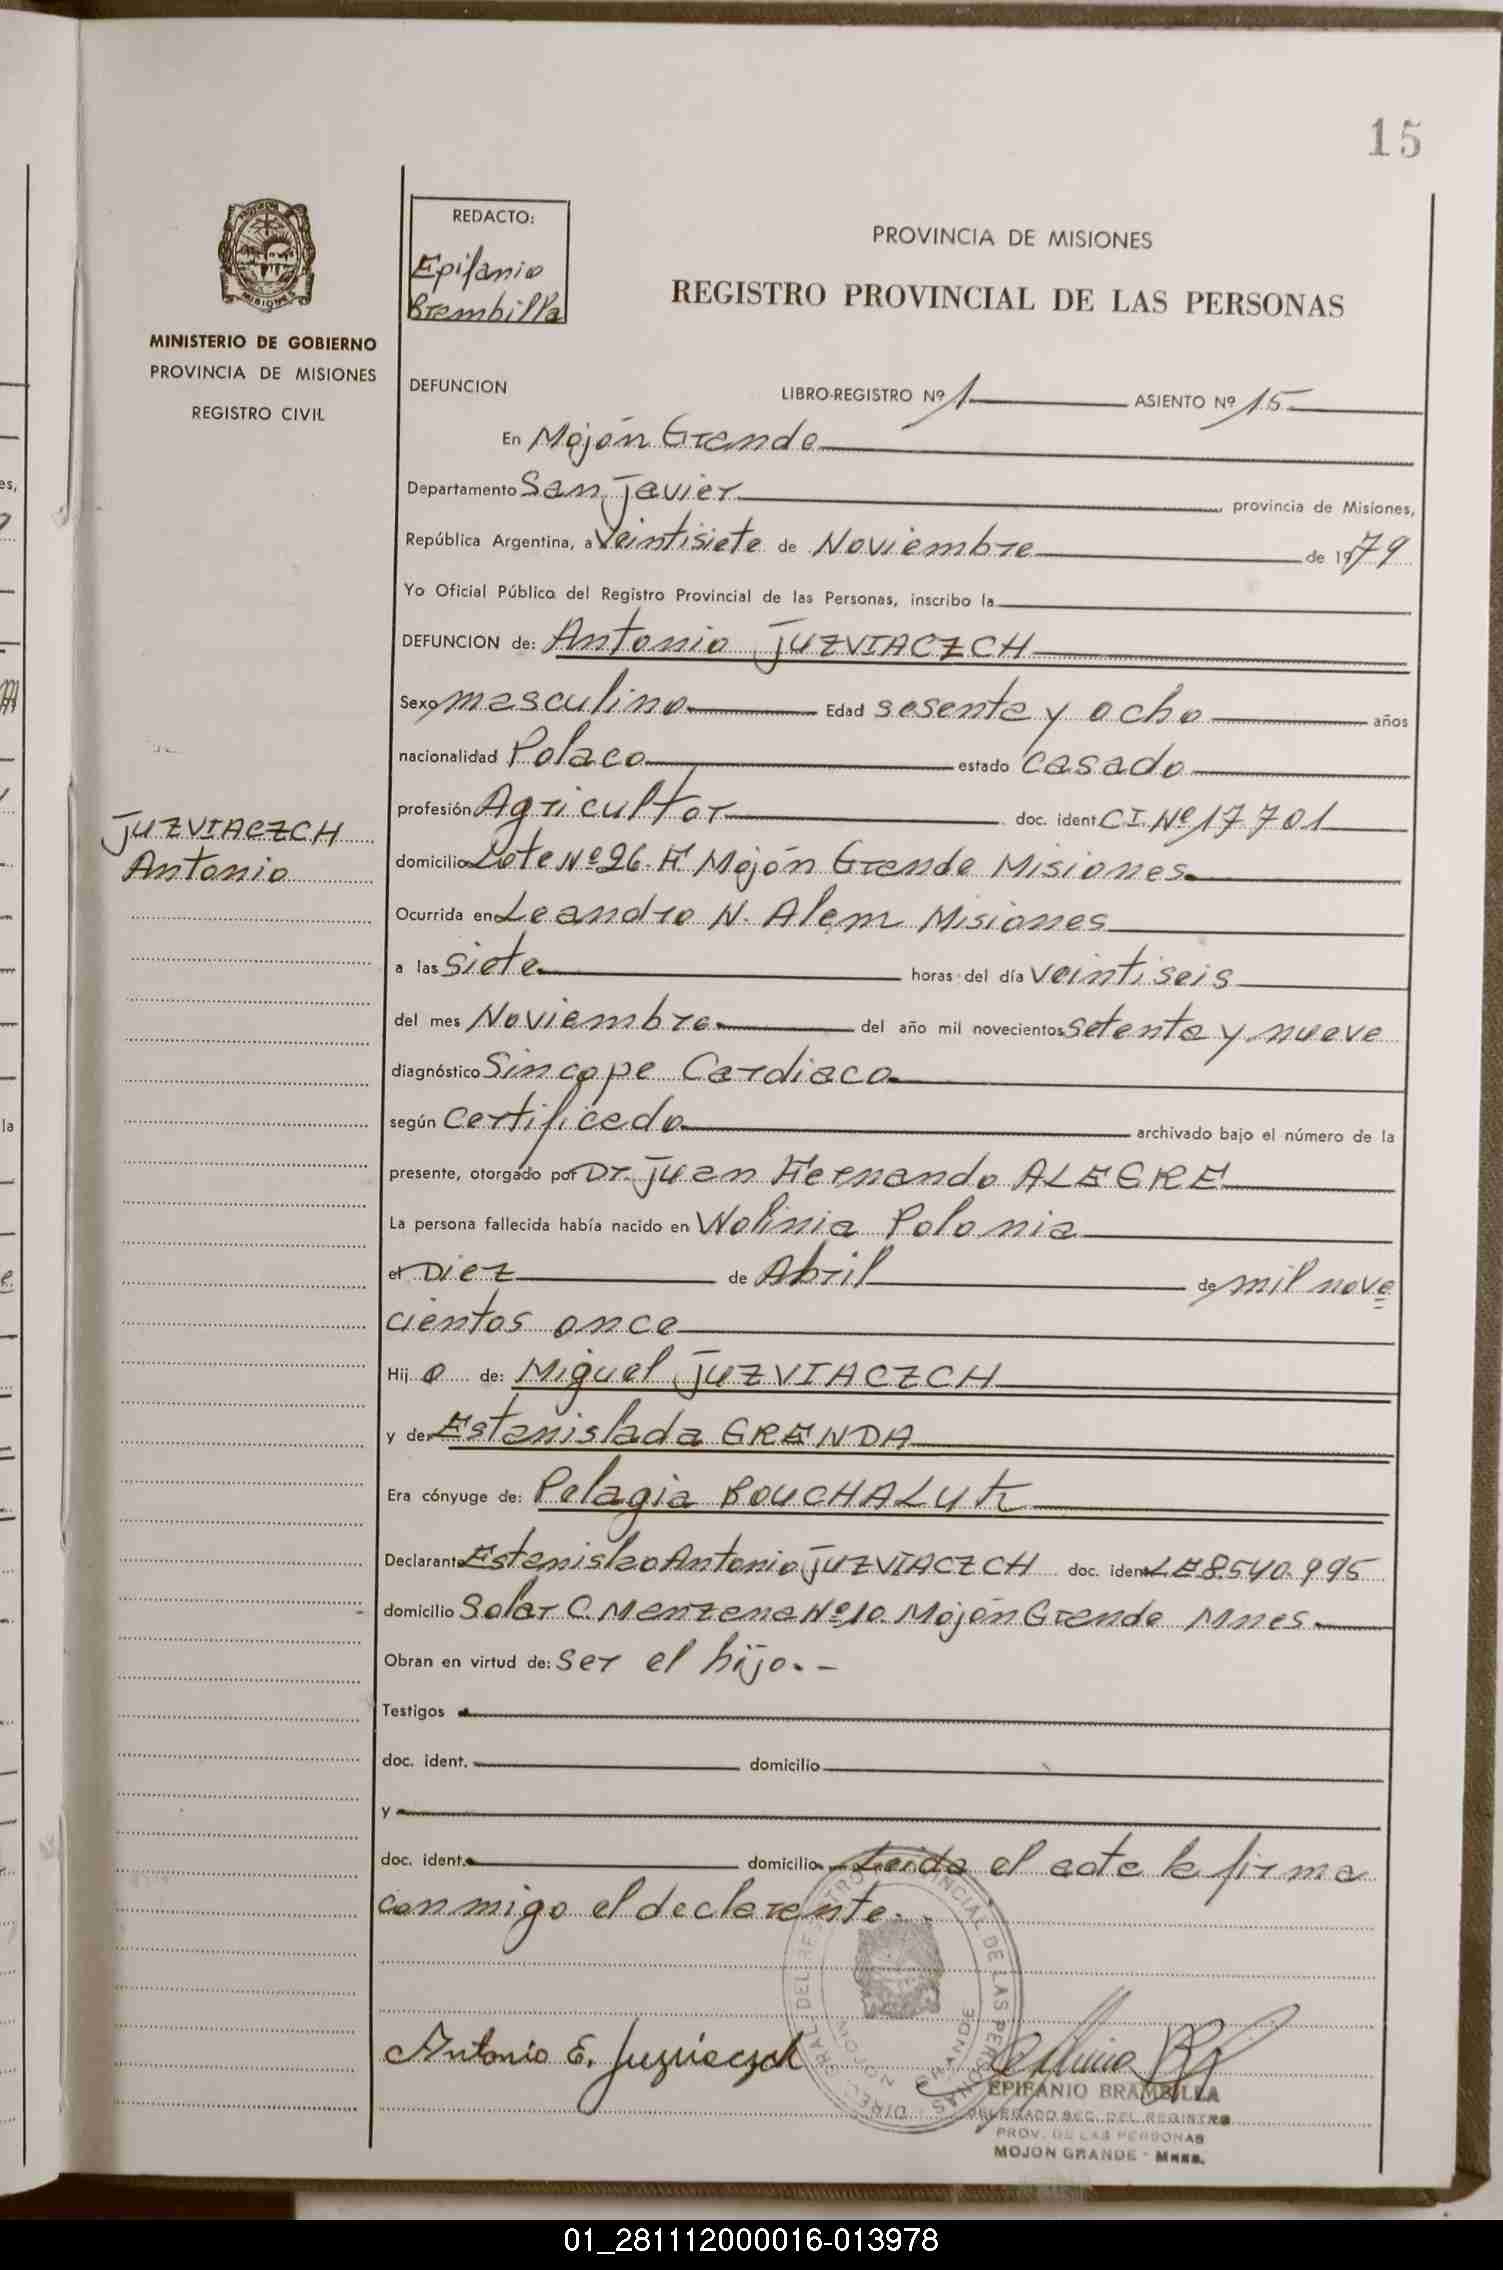 15
REDACTO:
Epifanio
Brambilla
PROVINCIA DE MISIONES
REGISTRO PROVINCIAL DE LAS PERSONAS
MISIONES
MINISTERIO DE GOBIERNO
PROVINCIA DE MISIONES
REGISTRO CIVIL
DEFUNCION LIBRO-REGISTRO Nº 1 ASIENTO Nº 15
En Mojón Grande
Departamento San Javier, provincia de Misiones,
República Argentina, a Veintisiete de Noviembre de 1979
Yo Oficial Público del Registro Provincial de las Personas, inscribo la
DEFUNCION de: Antonio JUZVIACZCH
Sexo masculino Edad sesenta y ocho años
nacionalidad Polaco estado casado
profesión Agricultor doc. ident C.I. Nº 17.701
JUZVIACZCH
Antonio
domicilio Lote Nº 26. F Mojón Grande Misiones
Ocurrida en Leandro N. Alem Misiones
a las siete horas del día veintiseis
del mes Noviembre del año mil novecientos setenta y nueve
diagnóstico Sincope Cardiaco
según certificado archivado bajo el número de la
presente, otorgado por Dr. Juan Fernando ALEGRE
La persona fallecida había nacido en Wolinia Polonia
el Diez de Abril de mil nove
cientos once
Hijo de: Miguel JUZVIACZCH
y de: Estanislada GRENDA
Era cónyuge de: Pelagia BOUCHALUK
Declarante Estanislao Antonio JUZVIACZCH doc. ident LE 8.540.995
domicilio Solar C. Manzana Nº 10. Mojón Grande Mnes
Obran en virtud de: ser el hijo.-
Testigos
doc. ident. domicilio
y
doc. ident. domicilio Leida el acta la firma
conmigo el declarante.
DIREC. GRAL. DEL REGISTRO PROVINCIAL DE LAS PERSONAS
MOJON GRANDE
Antonio E. Juzviaczch
EPIFANIO BRAMBILLA
DELEGADO SEC. DEL REGISTRO
PROV. DE LAS PERSONAS
MOJON GRANDE - Mnes.
01_281112000016-013978